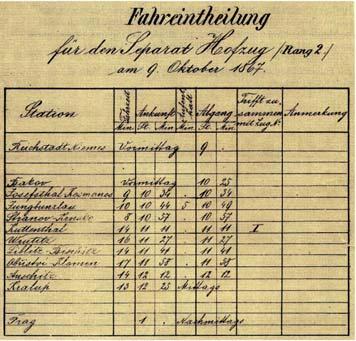 Fahreintheilung
für den Separat Hofzug (Rang 2.)
am 9. Oktober 1867.
Station Fahrzeit Min. Ankunft St. Min. Aufenthalt Min. Abgang St. Min. Trifft zusammen mit Zug Nr. Anmerkung
Reichstadt-Niemes Vormittag 9 .
Bakov Vormittag 10 25
Josefsthal Kosmanos 9 10 34 . 10 34
Jungbunzlau 10 10 44 5 10 49
8 10 57 . 10 57
Kuttenthal 14 11 11 . 11 11 I
Wrutitz 16 11 27 . 11 27
14 11 41 . 11 41
17 11 58 . 11 58
Auschitz 14 12 12 . 12 12
Kralup 13 12 25 Mittags
Prag 1 . Nachmittags